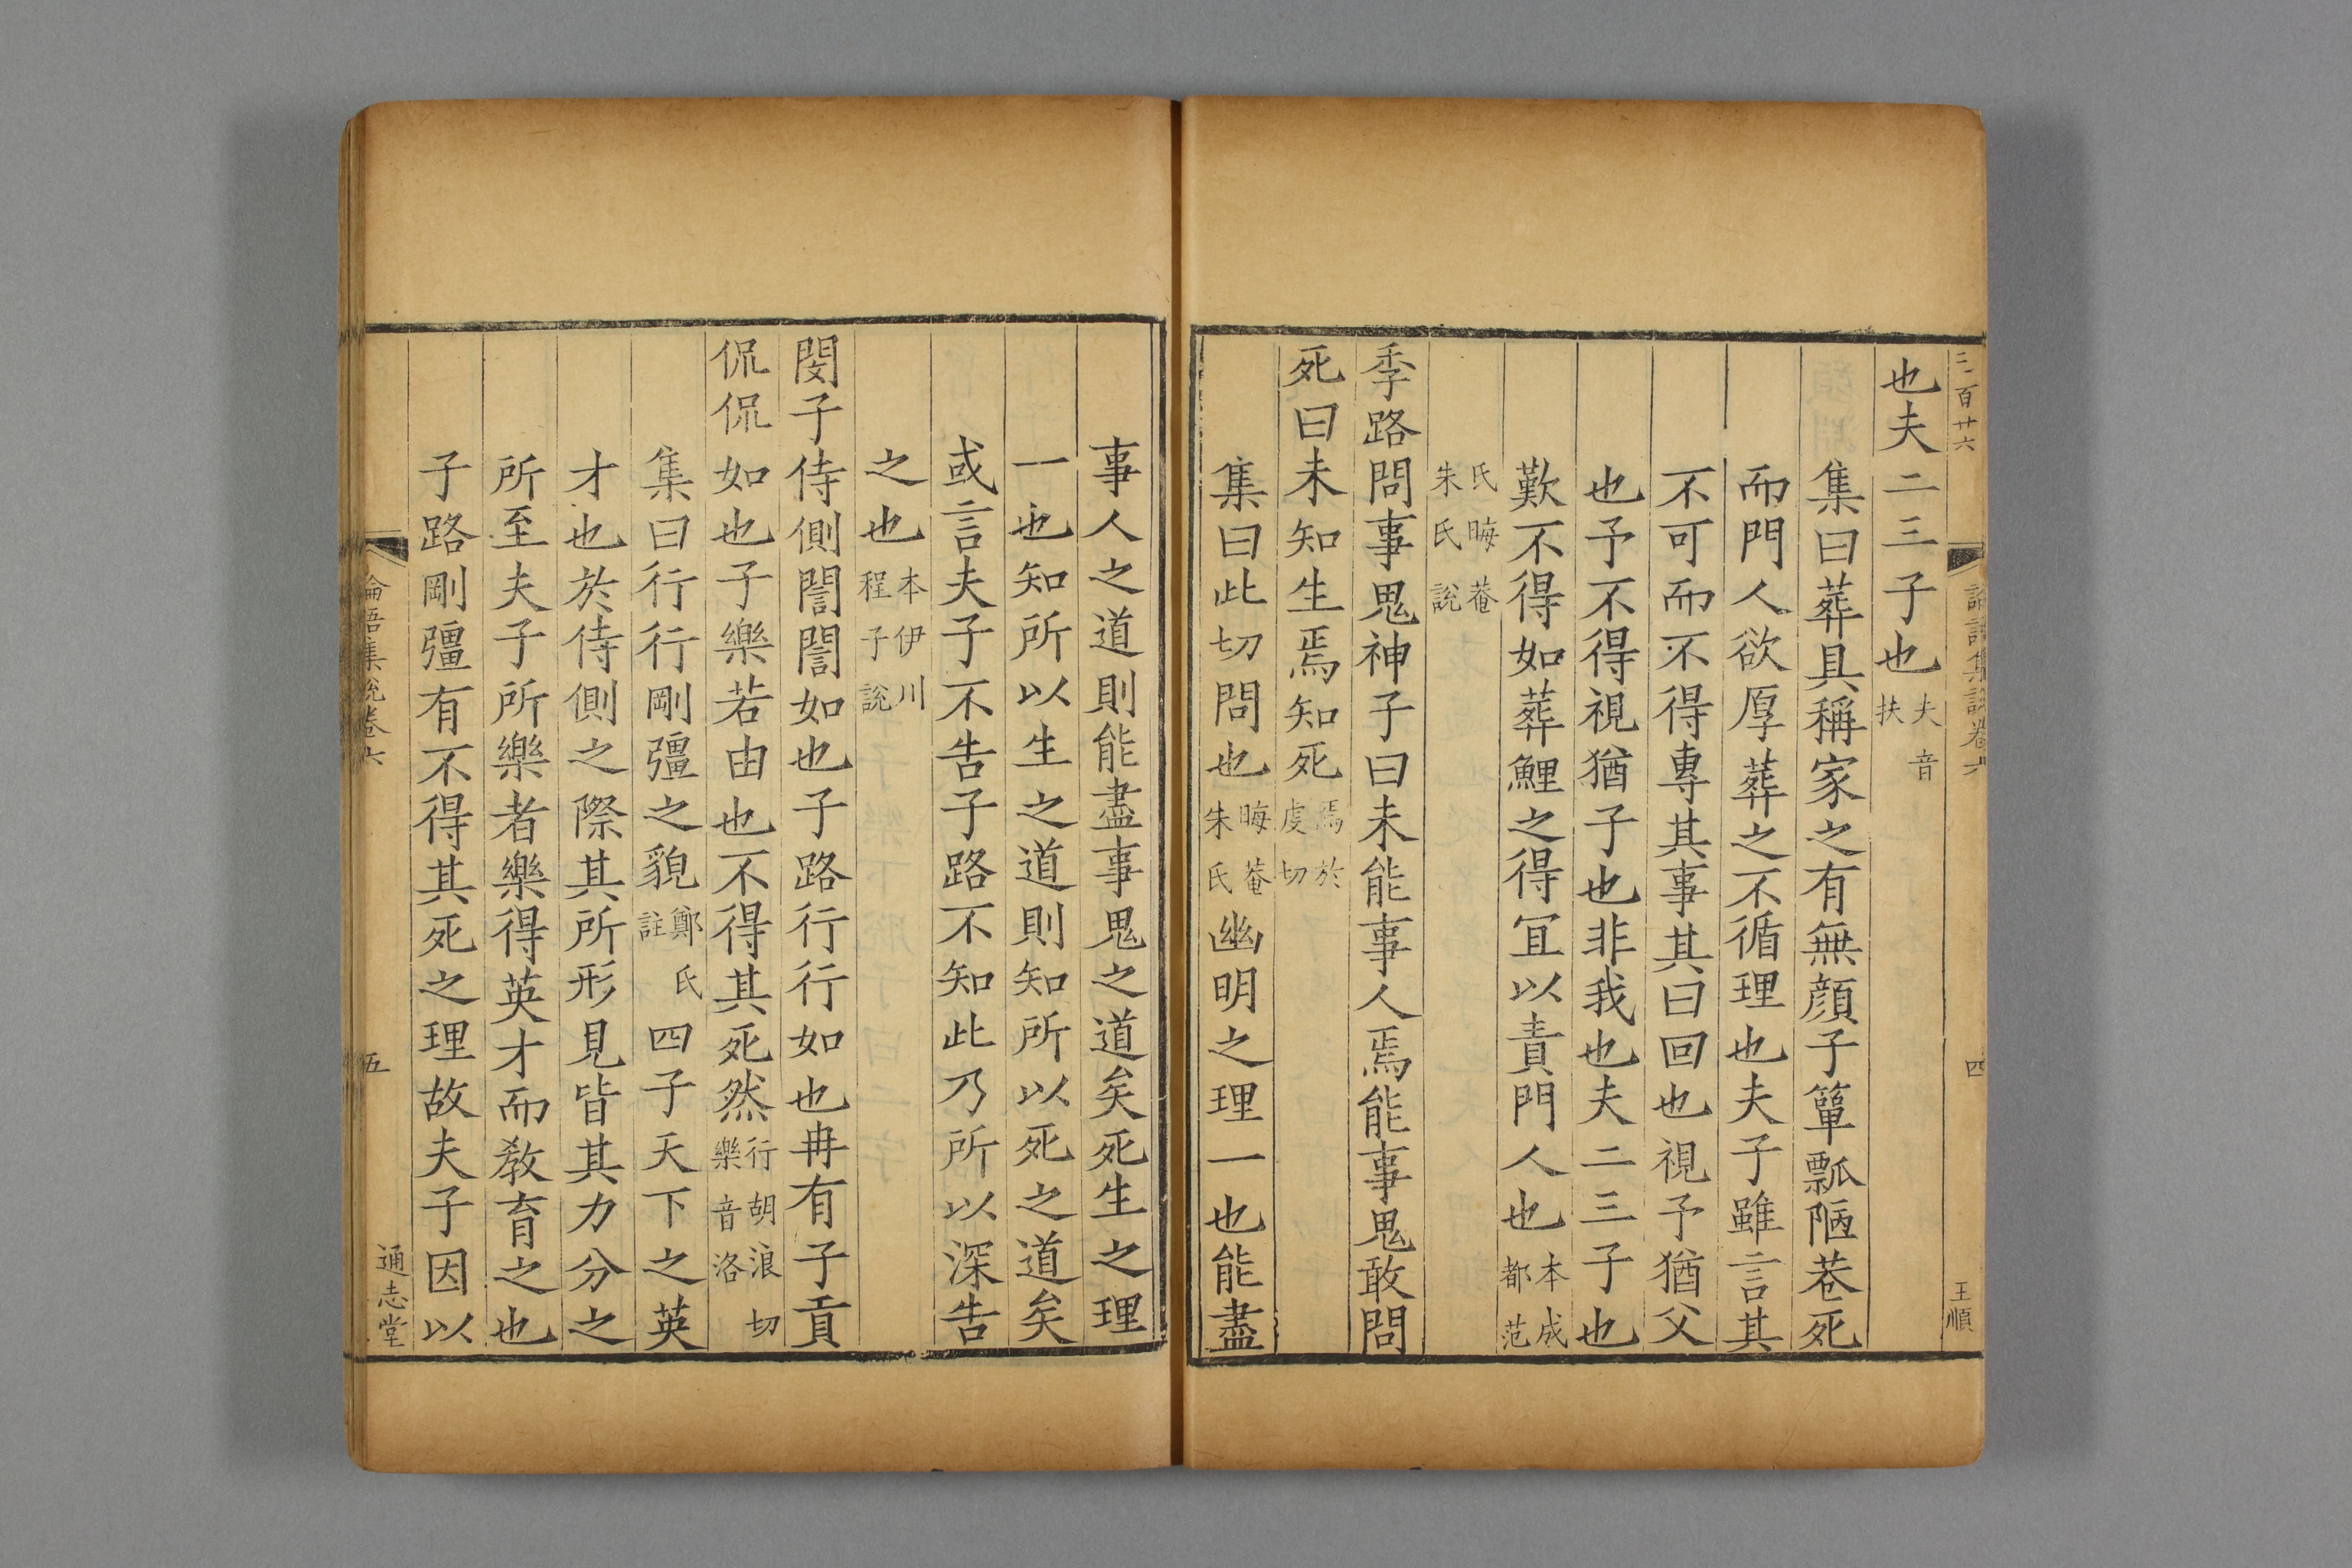 三百廿六
論語集說卷六
四
王順
也夫二三子也夫音扶
集曰葬具稱家之有無顔子簞瓢陋巷死
而門人欲厚葬之不循理也夫子雖言其
不可而不得專其事其曰回也視予猶父
也予不得視猶子也非我也夫二三子也
歎不得如葬鯉之得冝以責門人也本成都范
氏晦菴朱氏說
季路問事鬼神子曰未能事人焉能事鬼敢問
死曰未知生焉知死焉於虔切
集曰此切問也晦菴朱氏幽明之理一也能盡
事人之道則能盡事鬼之道矣死生之理
一也知所以生之道則知所以死之道矣
或言夫子不告子路不知此乃所以深告
之也本伊川程子說
閔子侍側誾誾如也子路行行如也冉有子貢
侃侃如也子樂若由也不得其死然行胡浪切樂音洛
集曰行行剛彊之貌鄭氏註四子天下之英
才也於侍側之際其所形見皆其力分之
所至夫子所樂者樂得英才而敎育之也
子路剛彊有不得其死之理故夫子因以
論語集說卷六
五
通志堂